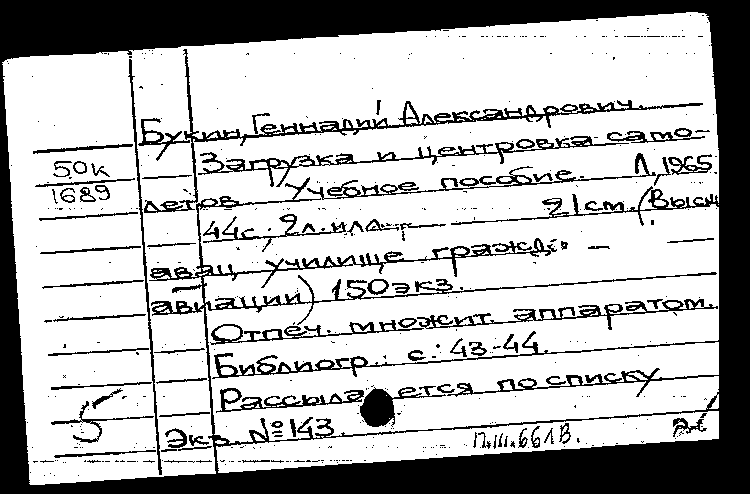 Букин, Геннадий Александрович.
50к
1689
Загрузка и центровка само-
летов. Учебное пособие. Л. 1965.
44с; 2л. илл. 21 cm. (Высш
авац. училище гражд.
авиации) 150 экз.
Отпеч. множит. аппаратом.
Библиогр.: с. 43-44.
Рассылается по списку.
5
Экз. №143.